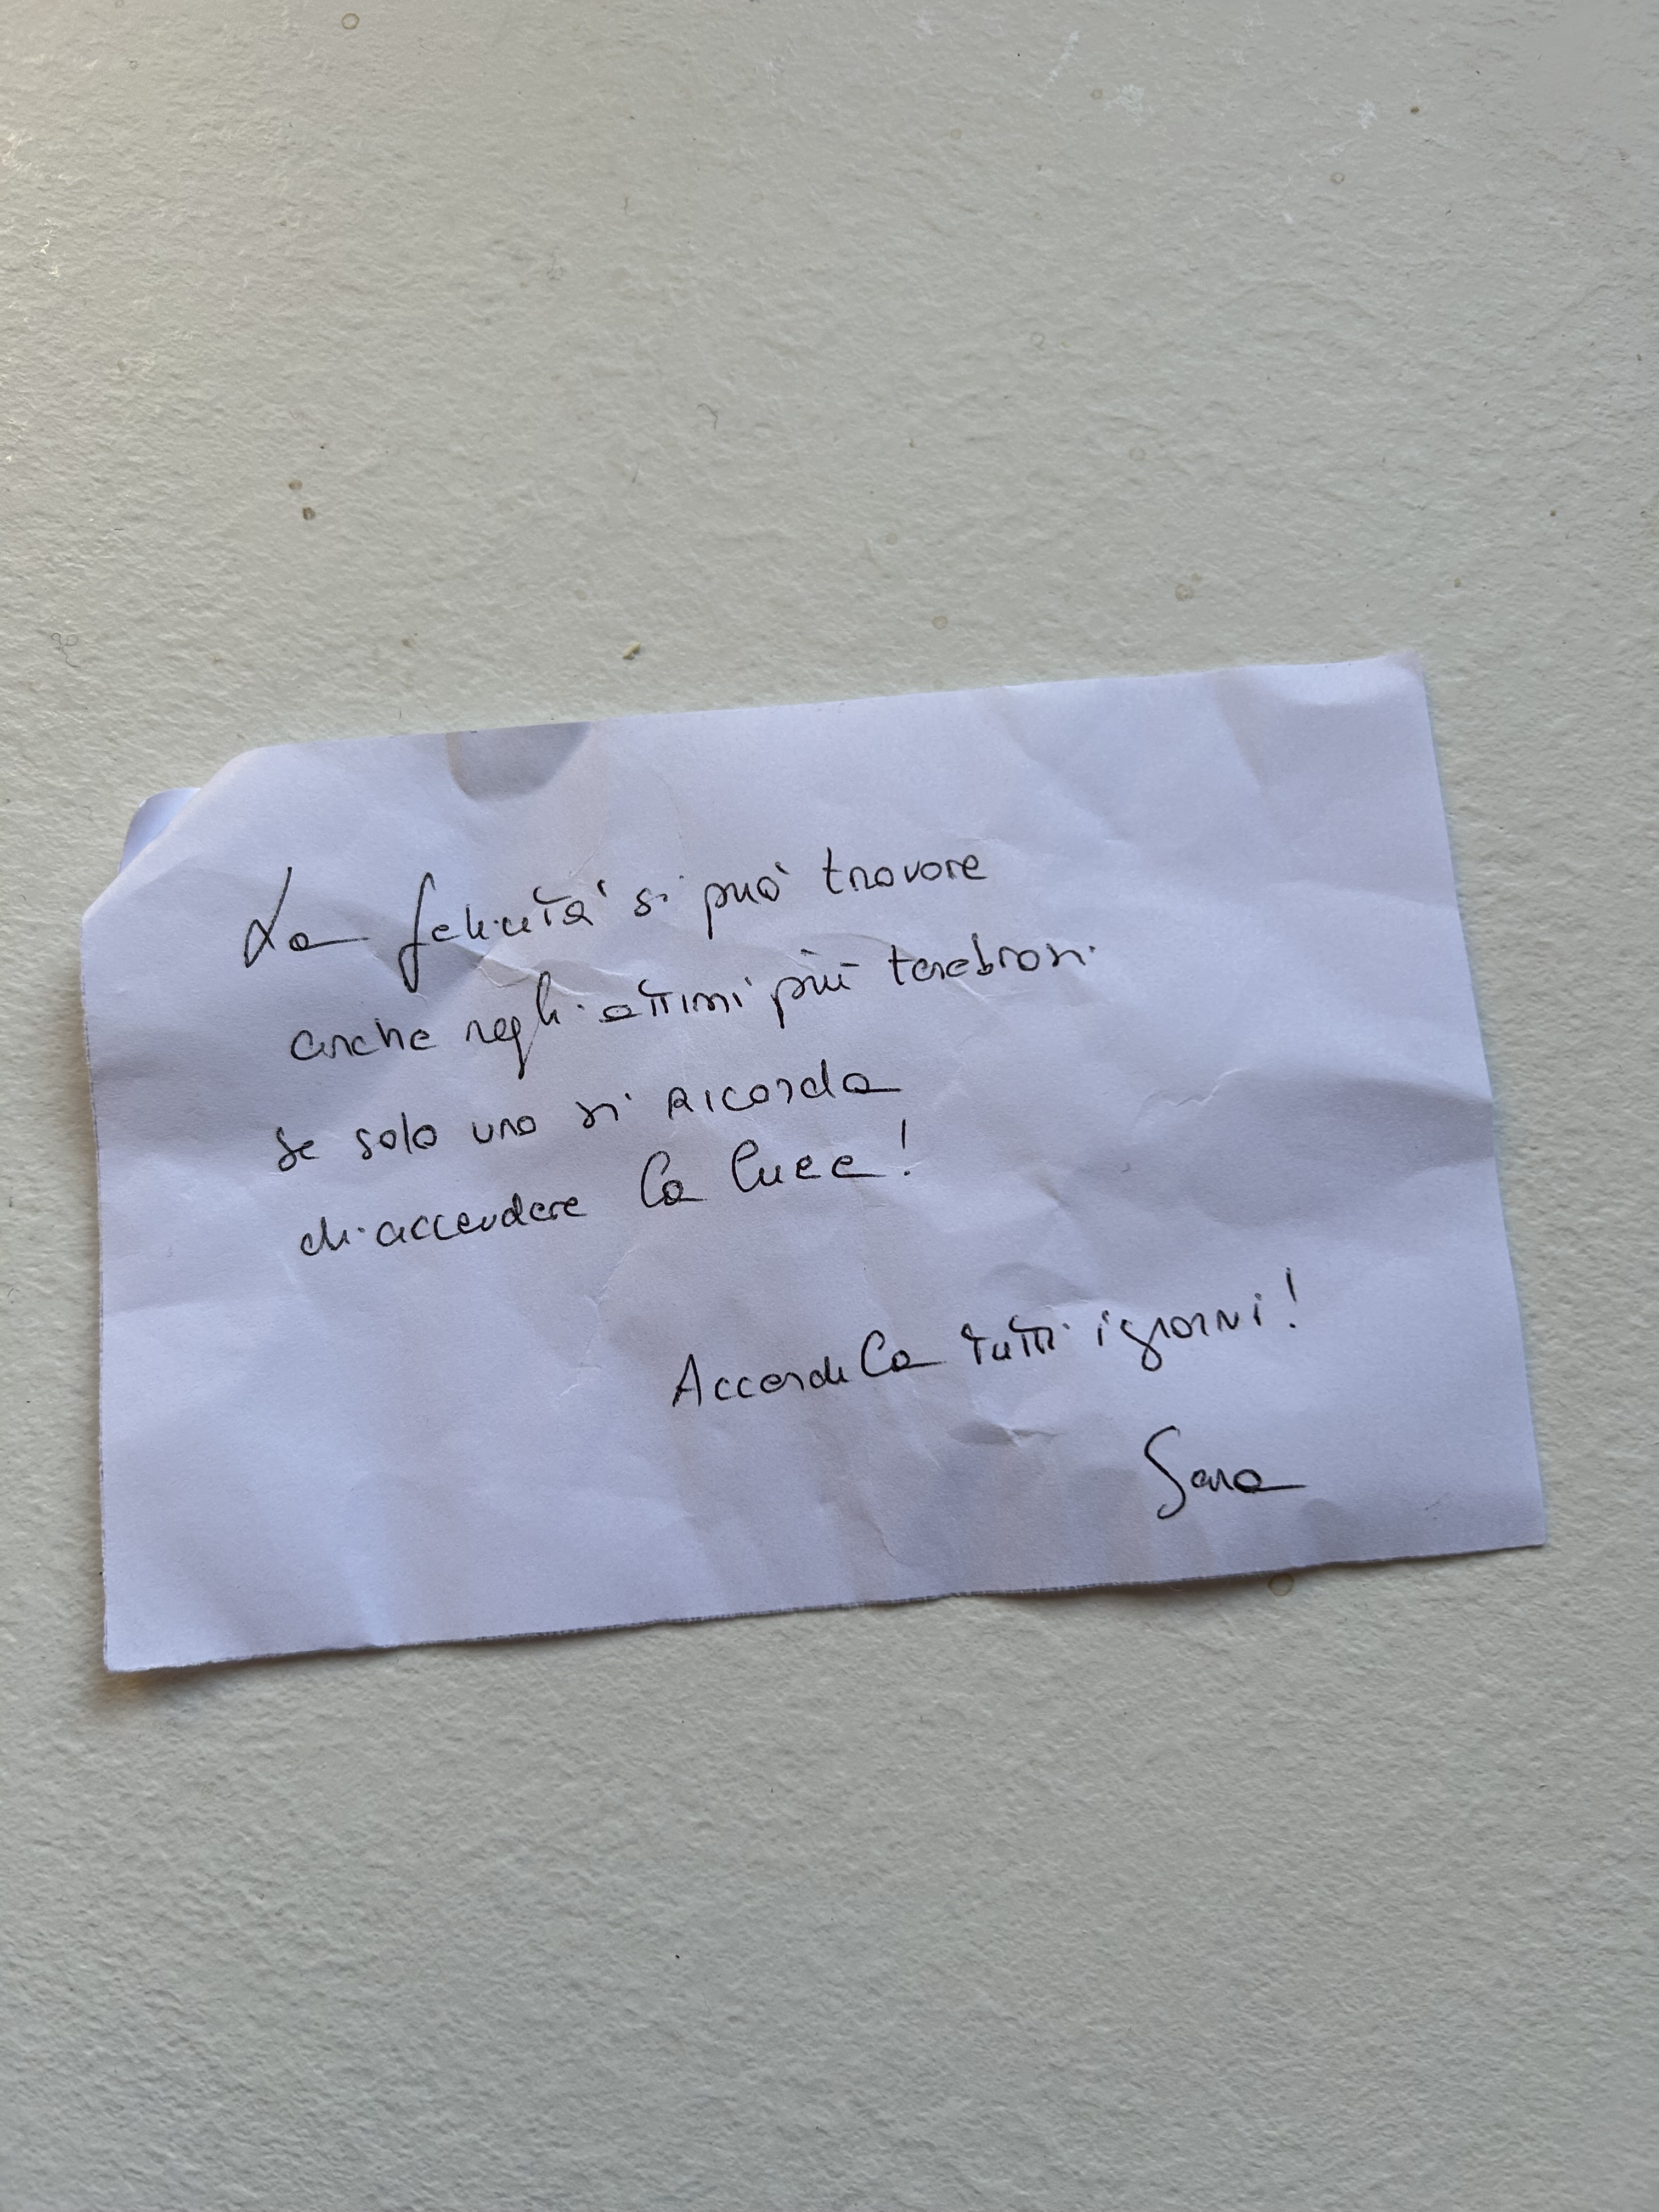 La felicità si può trovare
anche negli attimi più tenebrosi
se solo uno si ricorda
di accendere la luce!
Accendila tutti i giorni!
Sara